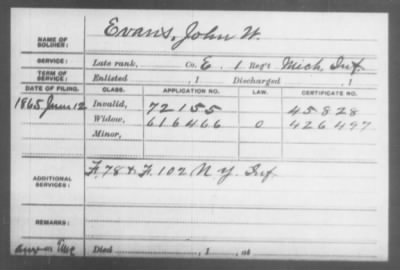 NAME OF SOLDIER: Evans, John W.
SERVICE: Late rank, Co. E, 1 Reg't Mich. Inf.
TERM OF SERVICE: Enlisted , 1 Discharged , 1
DATE OF FILING. CLASS. APPLICATION NO. LAW. CERTIFICATE NO.
1865 June 12 Invalid, 72155 45828
Widow, 616466 O 426497
Minor,
ADDITIONAL SERVICES: F. 78 & F. 102 N.Y. Inf.
REMARKS:
Died , 1 , at